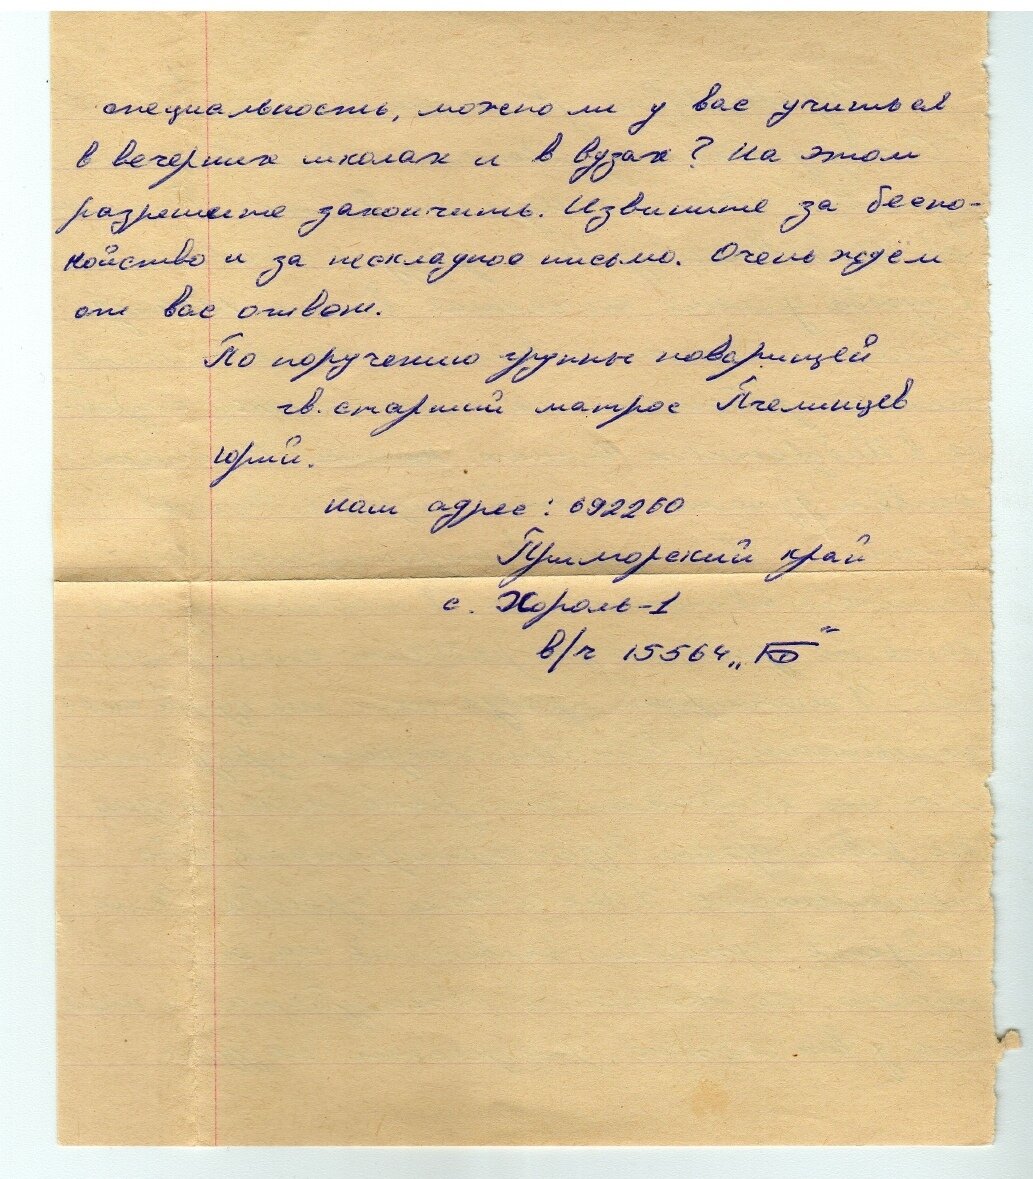 специальность, можно ли у вас учиться
в вечерних школах и в вузах? На этом
разрешите закончить. Извините за беспо-
койство и за нескладное письмо. Очень ждём
от вас ответ.
По поручению группы товарищей
гв. старший матрос Пчелинцев
Юрий.
наш адрес: 692260
Приморский край
с. Хороль-1
в/ч 15564 „